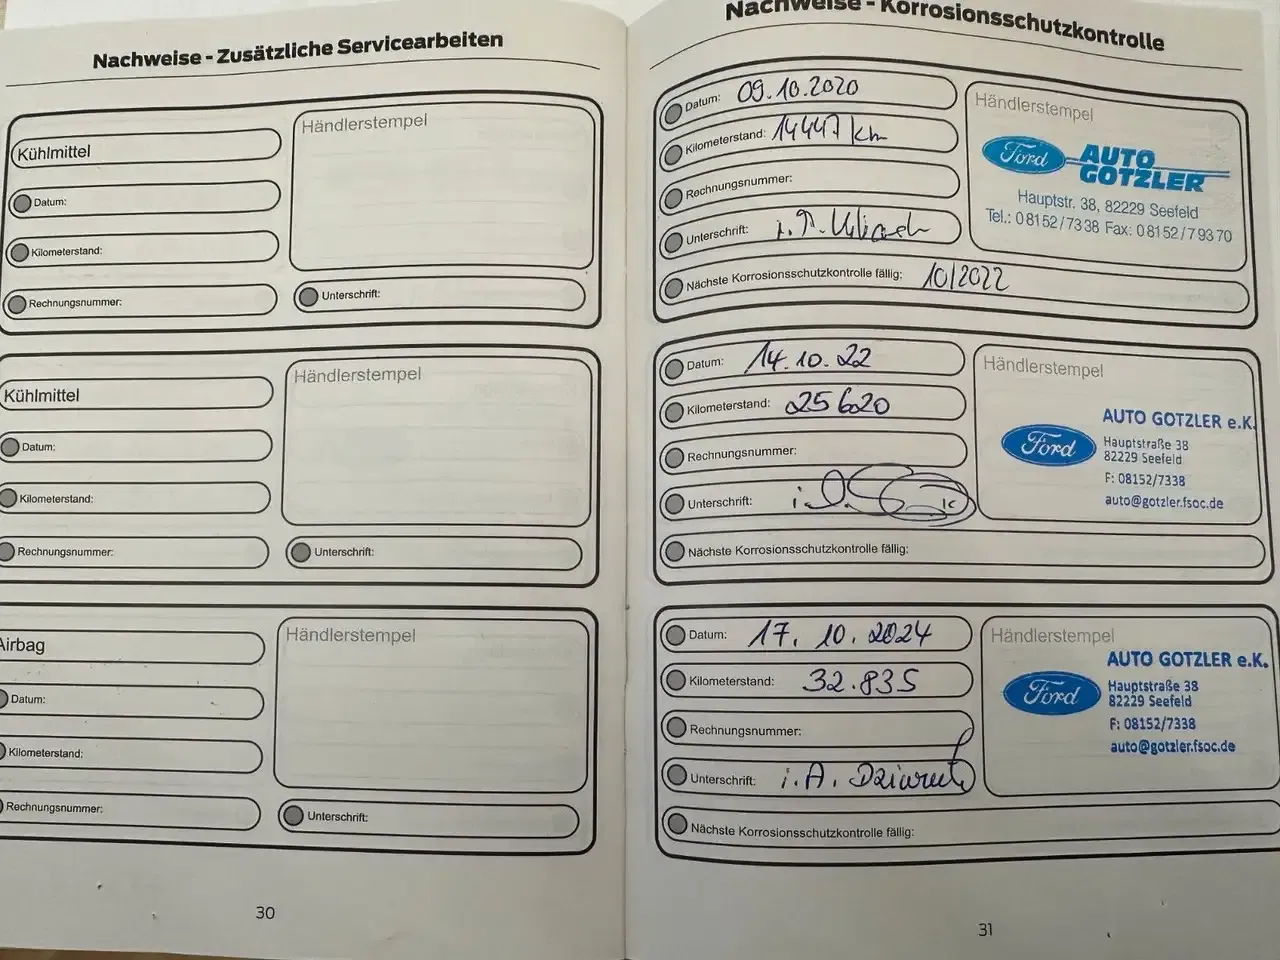 Nachweise - Zusätzliche Servicearbeiten
Kühlmittel
Datum:
Kilometerstand:
Rechnungsnummer:
Händlerstempel
Unterschrift:
Kühlmittel
Datum:
Kilometerstand:
Rechnungsnummer:
Händlerstempel
Unterschrift:
Airbag
Datum:
Kilometerstand:
Rechnungsnummer:
Händlerstempel
Unterschrift:
30
Nachweise - Korrosionsschutzkontrolle
Datum: 09.10.2020
Kilometerstand: 14447 km
Rechnungsnummer:
Unterschrift:
Nächste Korrosionsschutzkontrolle fällig: 10/2022
Händlerstempel
Ford AUTO
GOTZLER
Hauptstr. 38, 82229 Seefeld
Tel.: 08152/7338 Fax: 08152/79370
Datum: 14.10.22
Kilometerstand: 25620
Rechnungsnummer:
Unterschrift:
Nächste Korrosionsschutzkontrolle fällig:
Händlerstempel
AUTO GOTZLER e.K.
Ford
Hauptstraße 38
82229 Seefeld
F: 08152/7338
auto@gotzler.fsoc.de
Datum: 17.10.2024
Kilometerstand: 32.835
Rechnungsnummer:
Unterschrift: i.A.
Nächste Korrosionsschutzkontrolle fällig:
Händlerstempel
AUTO GOTZLER e.K.
Ford
Hauptstraße 38
82229 Seefeld
F: 08152/7338
auto@gotzler.fsoc.de
31